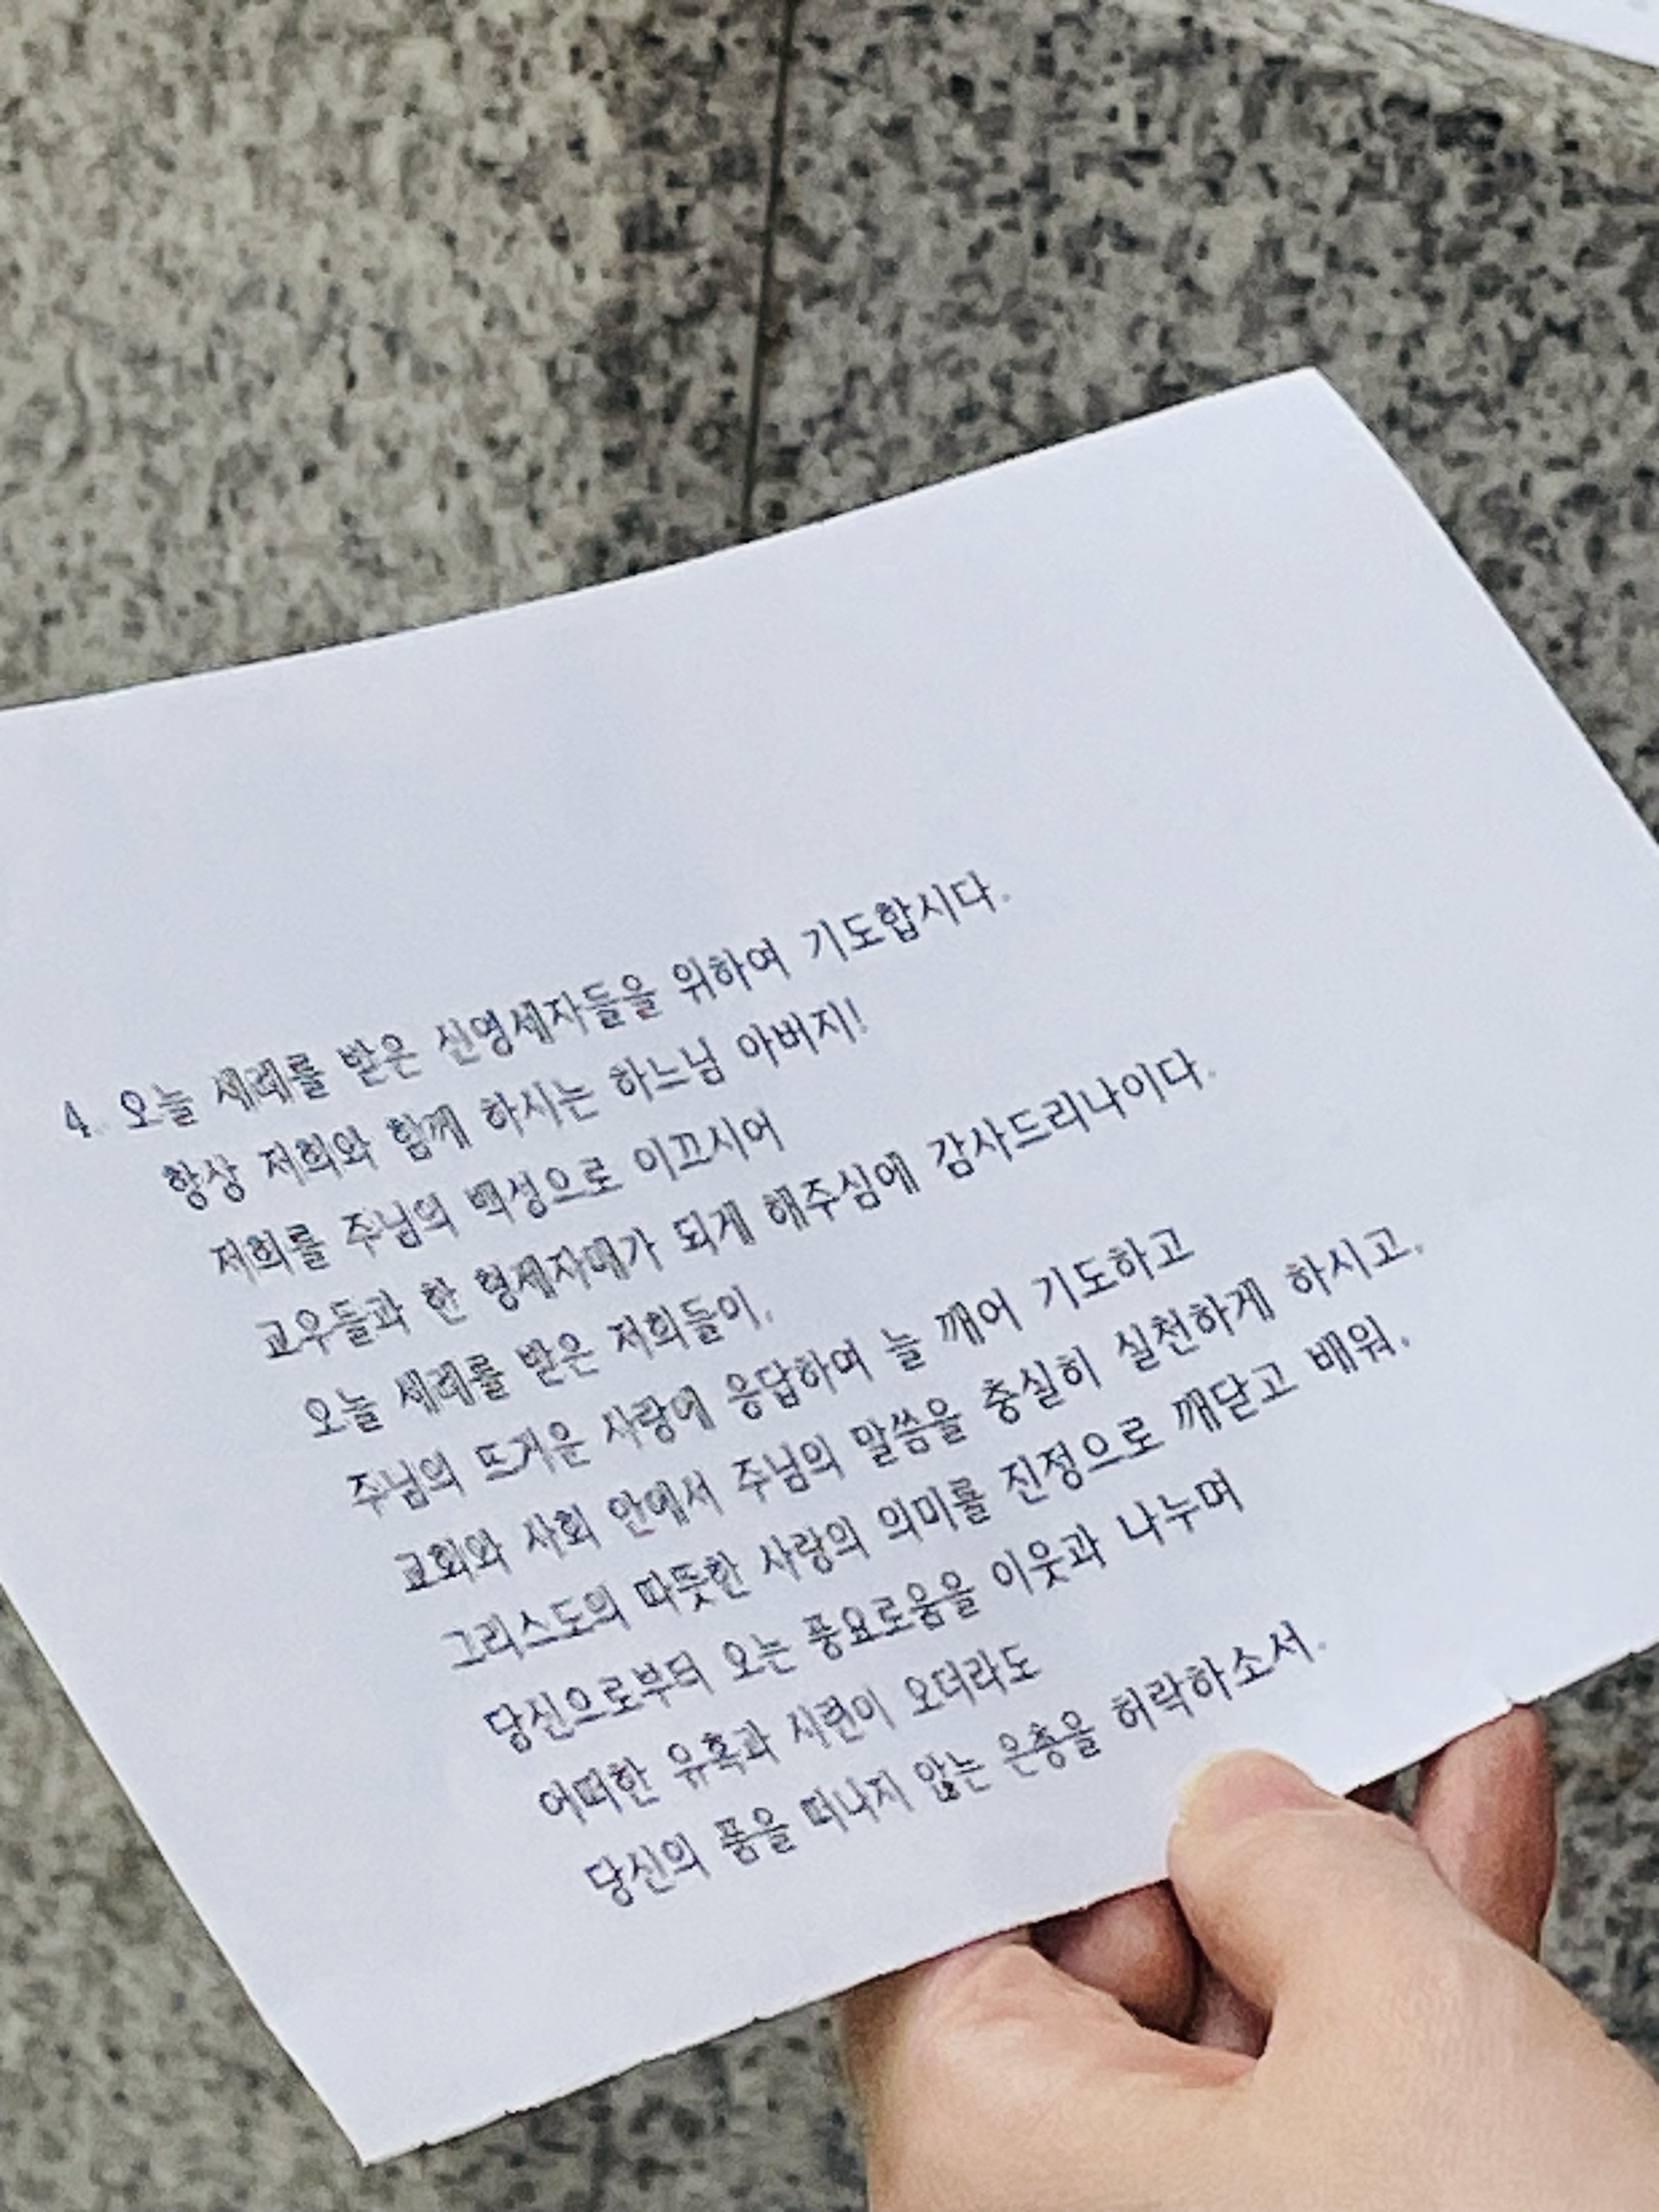 4. 오늘 세례를 받은 신영세자들을 위하여 기도합시다.
항상 저희와 함께 하시는 하느님 아버지!
저희를 주님의 백성으로 이끄시어
교우들과 한 형제자매가 되게 해주심에 감사드리나이다.
오늘 세례를 받은 저희들이,
주님의 뜨거운 사랑에 응답하며 늘 깨어 기도하고
교회와 사회 안에서 주님의 말씀을 충실히 실천하게 하시고,
그리스도의 따뜻한 사랑의 의미를 진정으로 깨닫고 배워,
당신으로부터 오는 풍요로움을 이웃과 나누며
어떠한 유혹과 시련이 오더라도
당신의 품을 떠나지 않는 은총을 허락하소서.